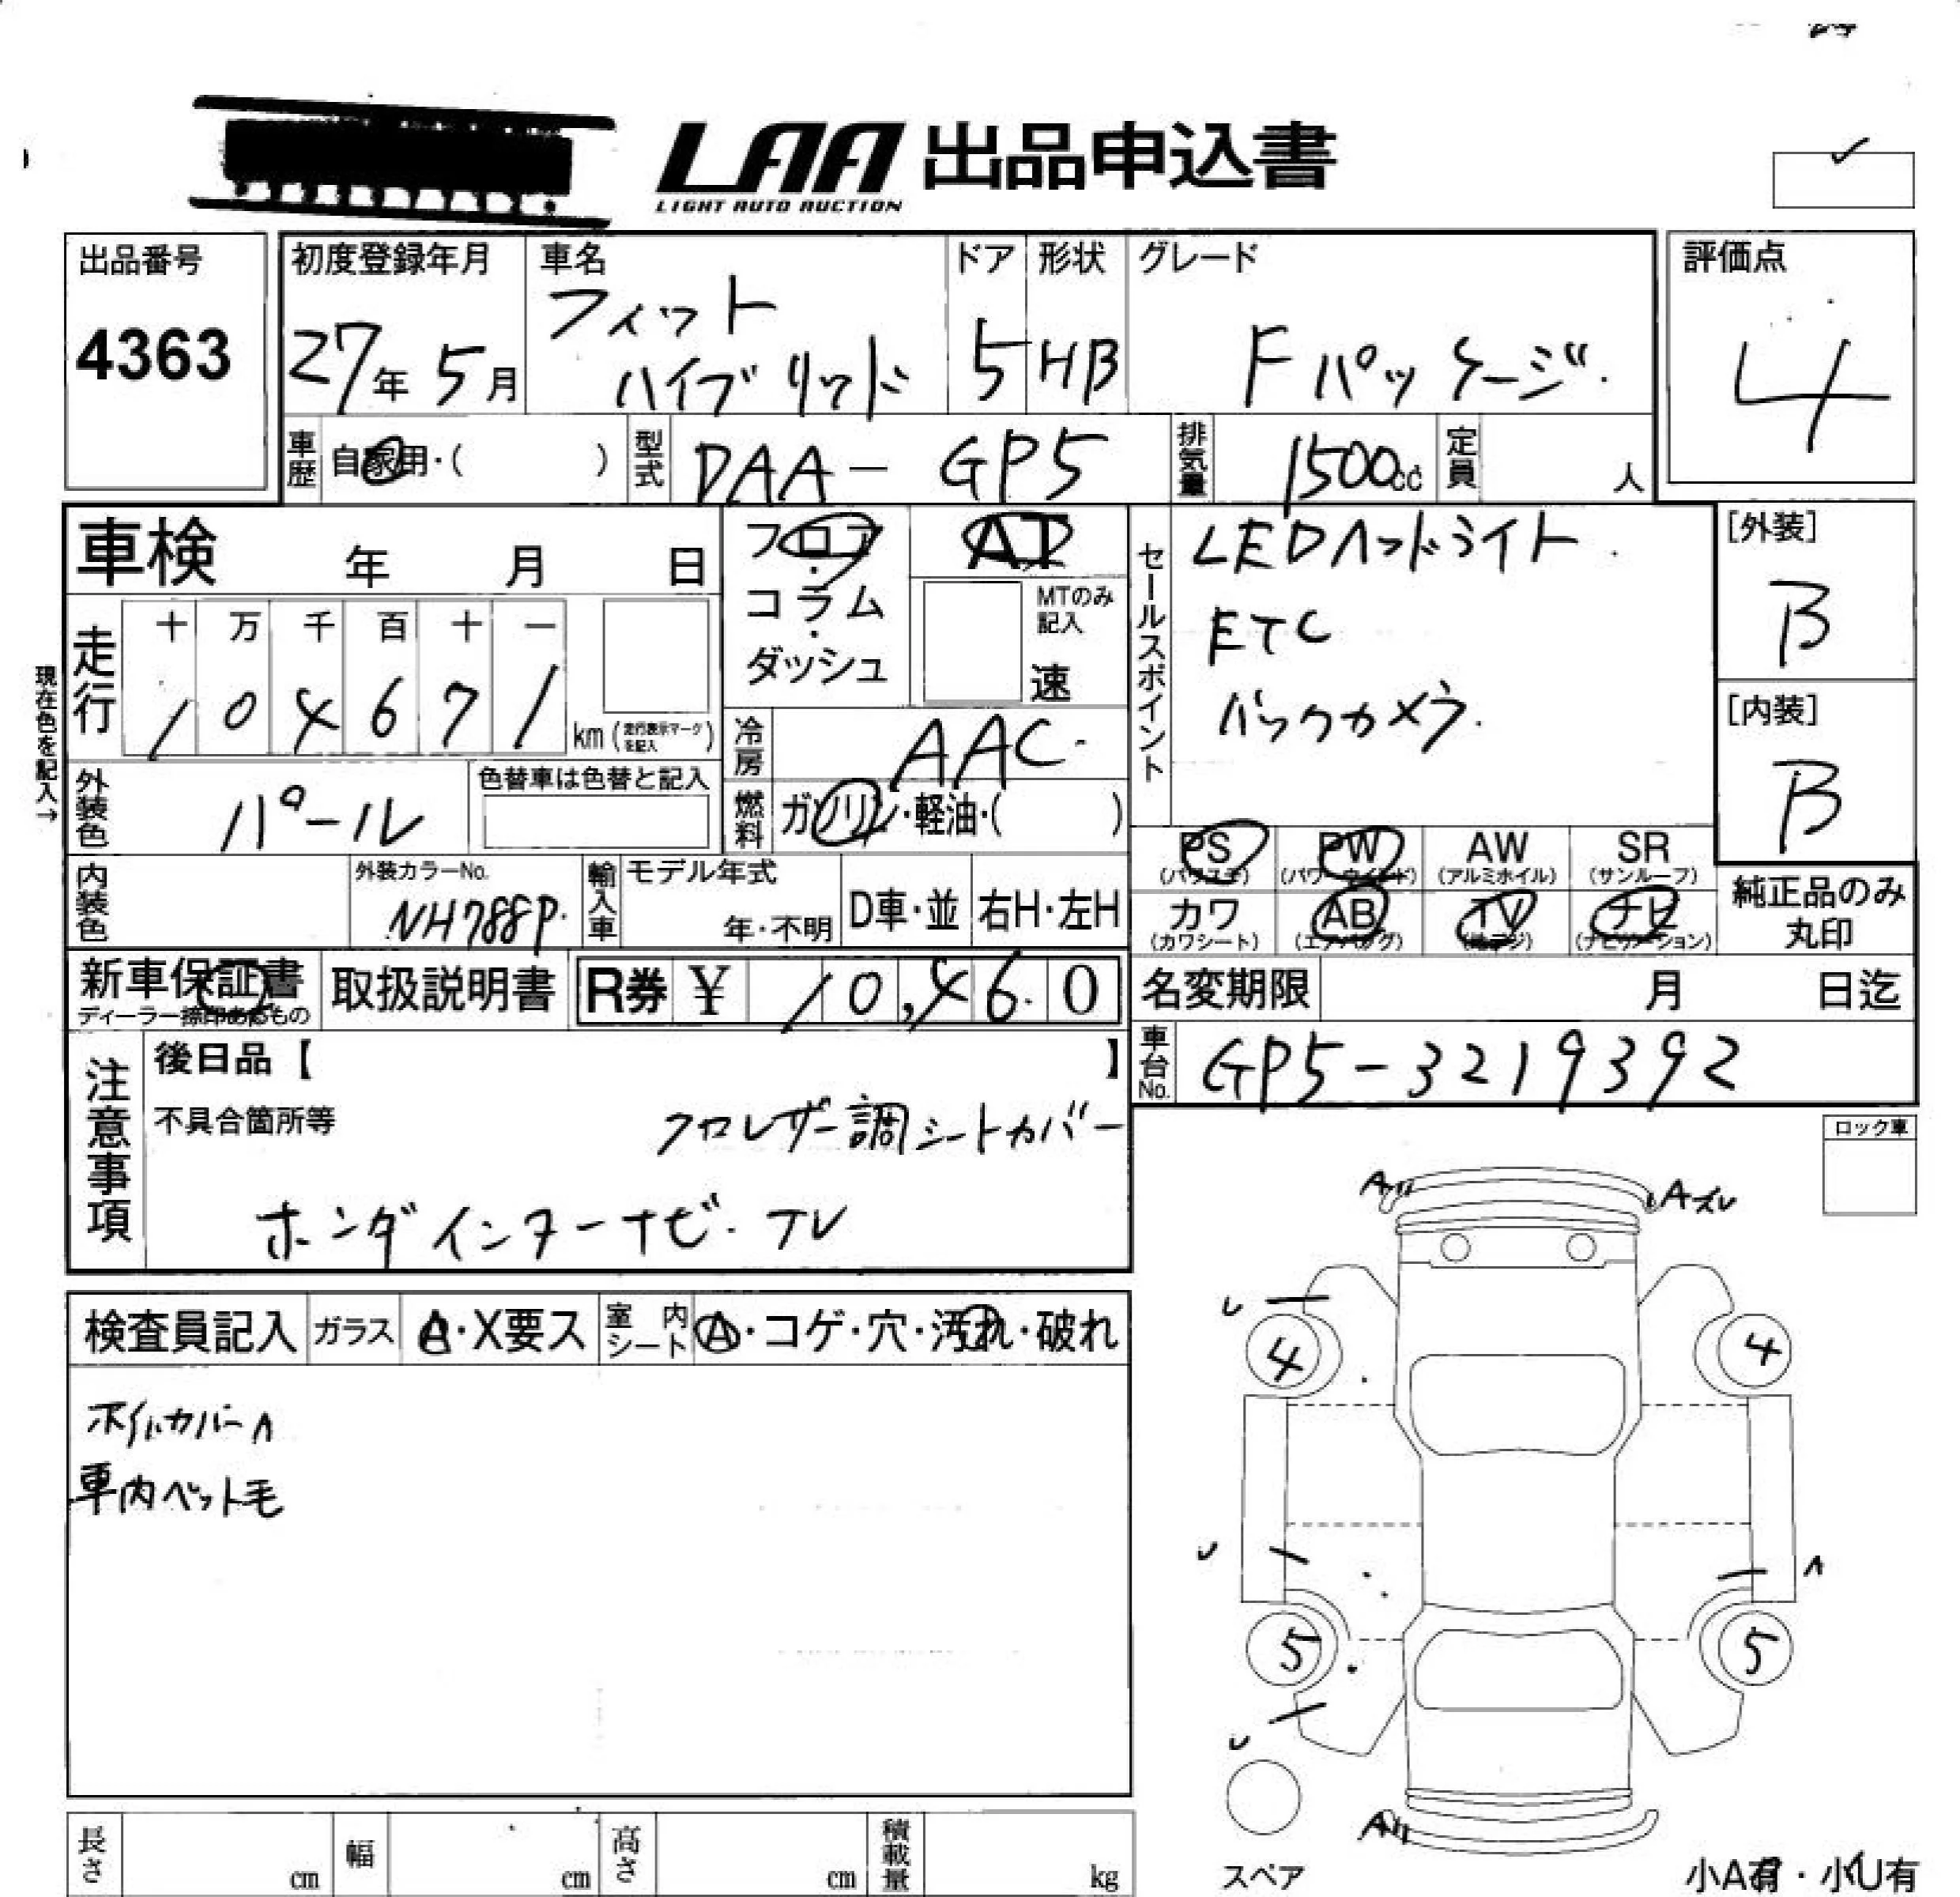 LAA 出品申込書
LIGHT AUTO AUCTION
出品番号
4363
初度登録年月
27年 5月
車名
フィット
ハイブリッド
ドア
5
形状
HB
グレード
Fパッケージ
評価点
4
車歴 自家用・( )
型式 DAA-GP5
排気量 1500cc
定員 人
車検 年 月 日
フロア・コラム・ダッシュ
AT
MTのみ記入
速
セールスポイント
LEDヘッドライト
ETC
バックカメラ
[外装]
B
[内装]
B
現在色を記入→
走行 十 万 千 百 十 一
1 0 4 6 7 1 km (走行表示マークを記入)
冷房 AAC
外装色 パール
色替車は色替と記入
燃料 ガソリン・軽油・( )
PS PW AW SR
(パワステ) (パワーウインド) (アルミホイル) (サンルーフ)
カワ AB TV ナビ
(カワシート) (エアバッグ) (地デジ) (ナビゲーション)
純正品のみ
丸印
内装色
外装カラーNo.
NH788P
輸入車
モデル年式
年・不明
D車・並
右H・左H
新車保証書
ディーラー捺印あるもの
取扱説明書
R券 ¥ 10,460
名変期限 月 日迄
車台No. GP5-3219392
注意事項
後日品【 】
不具合箇所等
クロレザー調シートカバー
ホンダインターナビ・TV
ロック車
検査員記入 ガラス A・X要ス 室内シート A・コゲ・穴・汚れ・破れ
ホイルカバーA
車内ペット毛
A
Aズレ
4 4
5 5
A
スペア
小A有・小U有
長さ cm
幅 cm
高さ cm
積載量 kg